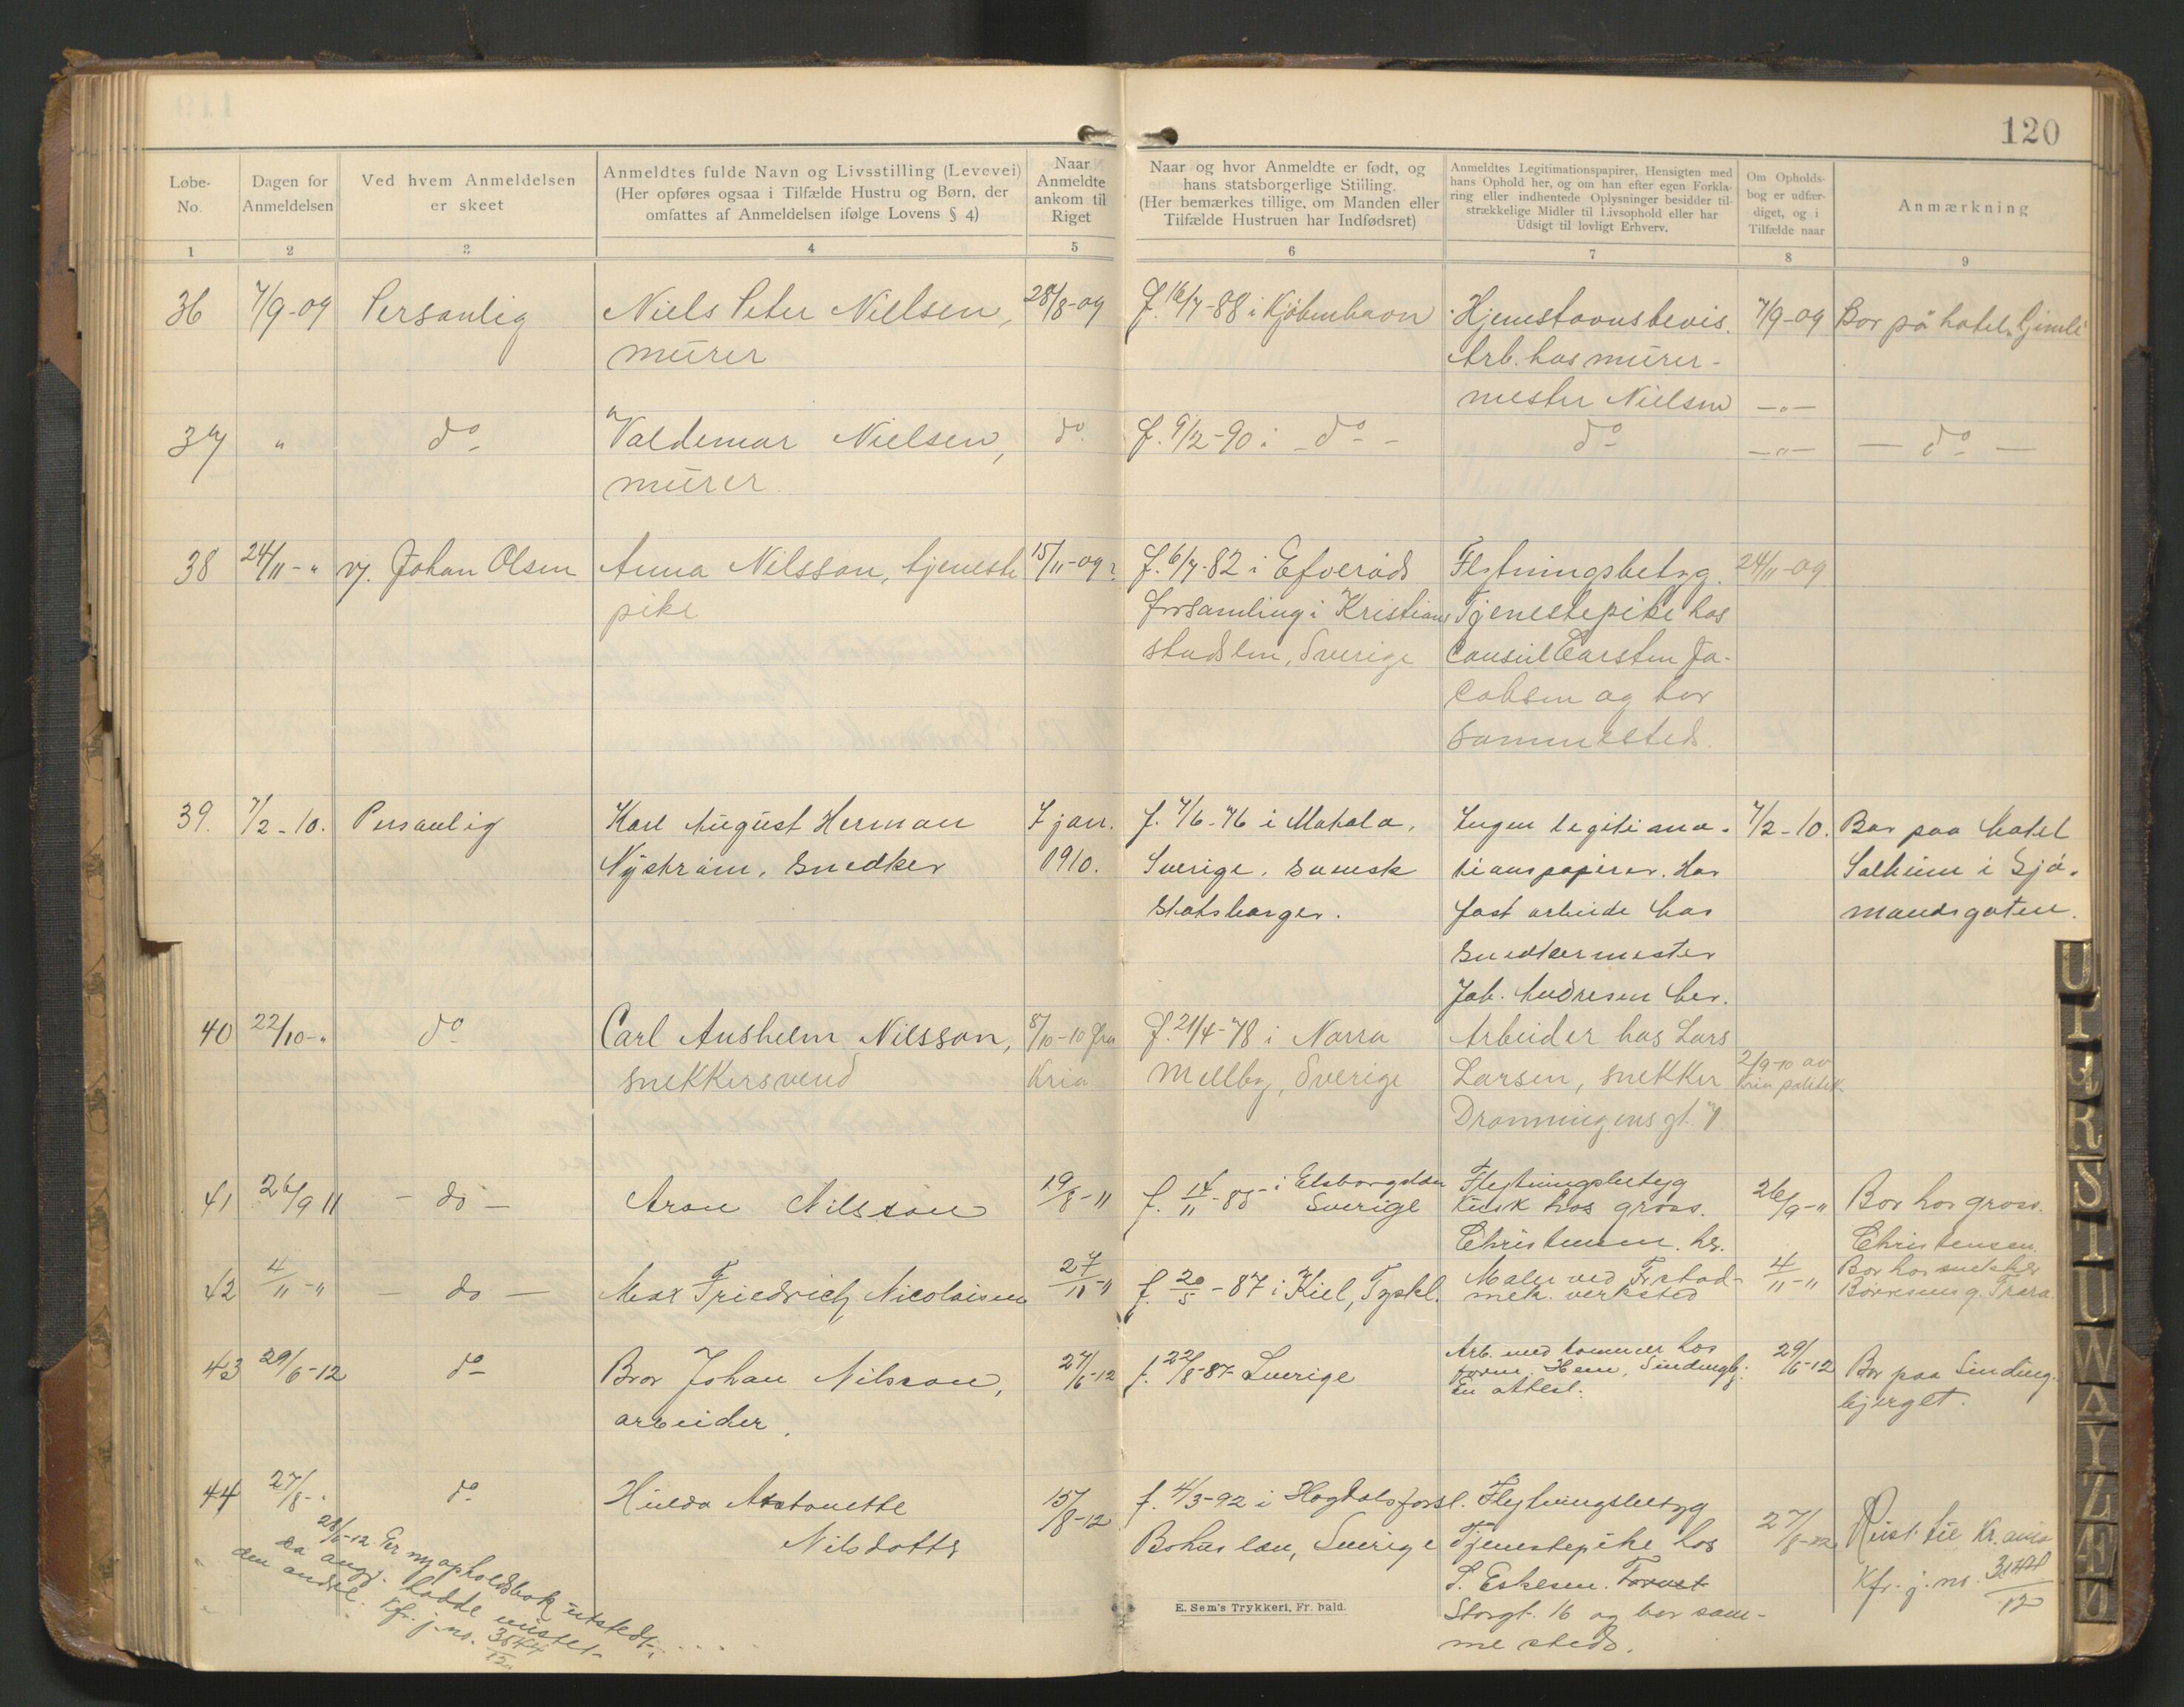 120
Løbe-
No.
Dagen for
Anmeldelsen
Ved hvem Anmeldelsen
er skeet
Anmeldtes fulde Navn og Livsstilling (Levevei)
(Her opføres ogsaa i Tilfælde Hustru og Børn, der
omfattes af Anmeldelsen ifølge Lovens § 4)
Naar
Anmeldte
ankom til
Riget
Naar og hvor Anmeldte er født, og
hans statsborgerlige Stiiling.
(Her bemærkes tillige, om Manden eller
Tilfælde Hustruen har Indfødsret)
Anmeldtes Legitimationspapirer, Hensigten med
hans Ophold her, og om han efter egen Forkla-
ring eller indhentede Oplysninger besidder til-
strækkelige Midler til Livsophold eller har
Udsigt til lovligt Erhverv.
Om Opholds-
bog er udfær-
diget, og i
Tilfælde naar
Anmærkning
1 2 3 4 5 6 7 8 9
36 7/9-09 Personlig Niels Peter Nielsen, 28/8-09 f. 16/7-88 i Kjøbenhavn Hjemstavnsbevis. 7/9-09 Bor på hotel Gimle
murer Arb. hos murer-
mester Nielsen -"-
37 " do Valdemar Nielsen, do f. 9/2-90 i - do - do -"- - do -
murer.
38 24/11-" vj. Johan Olsen Anna Nilsson, tjeneste 15/11-09 f. 6/7-82 i Efveröds Flytningsbetyg. 24/11-09
pike forsamling i Kristian Tjenestepike hos
stads len, Sverige Consul Carsten Ja-
cobsen og bor
sammesteds.
39. 7/2-10. Personlig Karl August Herman 7 jan. f. 7/6-76 i Motala, Ingen legitima- 7/2-10. Bor paa hotel
Nyström, snedker 1910. Sverige. svensk tionspapirer. Har Solheim i Sjø-
statsborger. fast arbeide hos mandsgaten.
snedkermester
Joh. Andresen her.
40 22/10-" do Carl Anshelm Nilsson, 8/10-10 fra f. 21/4-78 i Norra Arbeider hos Lars
snekkersvend Kria Mellby, Sverige Larsen, snekker 2/9-10 av
Kria politik.
Dronningens gt. 7
41 26/9 11 - do - Aron Nilsson 19/8-11 f. 14/11-85 i Elsborgslän Flytningsbetyg 26/9-" Bor hos gross.
Sverige Kusk hos gross.
Christensen. her. Christensen.
42 4/11-" - do - Max Friedrich Nicolaisen 27/10-" f. 20/5-87 i Kiel, Tyskl. Maler ved Frstad 4/11-" Bor hos snedker
mek. verksted Børresens g. Trara
43 29/6-12 do Bror Johan Nilsson, 27/6-12 f. 22/8-87 Sverige Arb. med tømmer hos 29/6-12 Bor paa Sinding-
arbeider. Sindingbj. bjerget.
En attest.
44 27/8-" do Hilda Antonette 15/8-12 f. 4/3-92 i Hogdals forsl. Flytningsbetyg 27/8-12 Reist til Kr.ania
Nilsdotter Bohus län, Sverige Tjenestepike hos Kfr. j. no. 3544/12
S. Eskesen.
Storgt. 16 og bor sam-
me steds.
28/11-12. Er ny opholdsbok utstedt,
da angj. hadde mistet
den anden. Kfr. j. no. 3544/12
E. Sem's Trykkeri, Fr. hald.
U
R
S
I
U
W
Y
Z
Æ
Ø